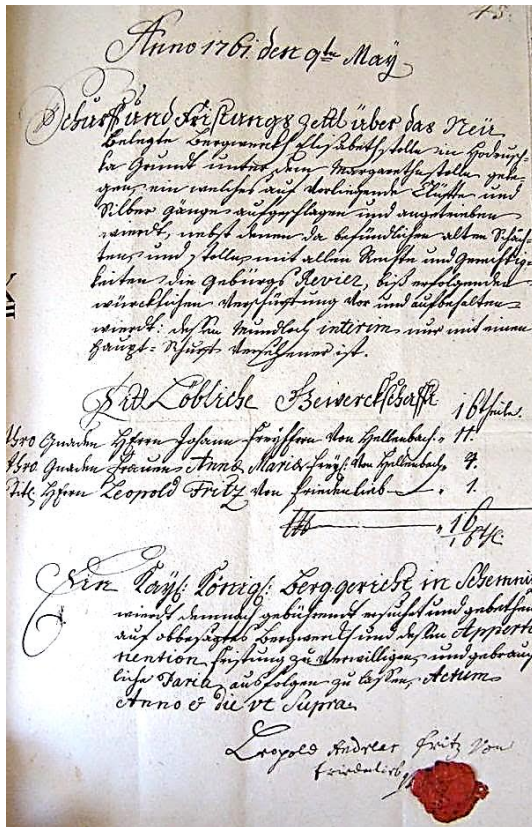 45.
Anno 1761 den 9ten May
Schurff und Fristungs Zettl über das Neü
Belegte Bergwerckh Elisabethstolln in Hodrusch
ka Grundt unter dem Margarethastolln gele-
gen, ein welches auf Vorliegende Clüffte und
Silber Gänge aufgeschlagen und angetrieben
wierdt, nebst denen da befündlichen alten Schäch-
ten, und Stolln, mit allen Rechte und Gerechtig-
keiten die Gebürgs Revier, biß erfolgenden
würcklichen Verschürffung Vor und aufbehalten
wierdt: dessen Mundloch interim nur mit einen
Haupt-Schurff Versehener ist.
Titl Löbliche Gewerckschafft 16 theile.
Ihro Gnaden Herrn Johann Freyherrn Von Hellenbach " 11.
Ihro Gnaden Frauen Anna Maria Freyh: Von Hellenbach " 4.
Titl Herrn Leopold Fritz Von Friedenlieb " 1.
" 16
Ein Kayß: Königl: Berggericht in Schemniz
wierdt demnach gebührendt ersucht und gebethen
auf obbesagtes Bergwerckh und dessen Apperti-
nention Fristung zu Verwilligen, und gebräuch
liche Taria ausfolgen zu lassen, Actum
Anno & die ut Supra.
Leopold Andreas Fritz Von
Friedenlieb